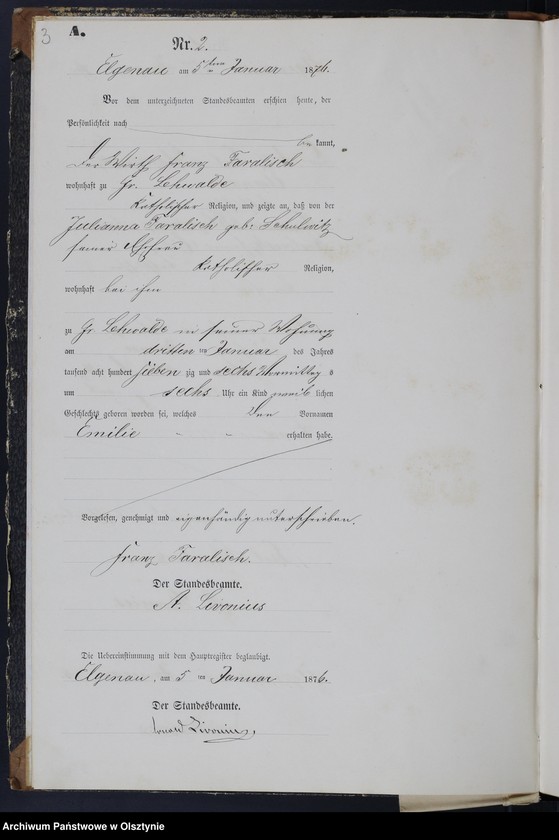 3
A.
Nr. 2.
Elgenau am 5ten Januar 1876.
Vor dem unterzeichneten Standesbeamten erschien heute, der
Persönlichkeit nach
be kannt,
der Wirth Franz Taralisch
wohnhaft zu Gr. Lehwalde
katholischer Religion, und zeigte an, daß von der
Julianna Taralisch geb. 
seiner Ehefrau
katholischer Religion,
wohnhaft bei ihm
zu Gr. Lehwalde in seiner Wohnung
am dritten ten Januar des Jahres
tausend acht hundert sieben zig und sechs Vormittag s
um sechs Uhr ein Kind weib lichen
Geschlechts geboren worden sei, welches den Vornamen
Emilie - - erhalten habe.
Vorgelesen, genehmigt und eigenhändig unterschrieben.
Franz Taralisch.
Der Standesbeamte.
A. Livonius
Die Uebereinstimmung mit dem Hauptregister beglaubigt.
Elgenau, am 5 ten Januar 1876.
Der Standesbeamte.
Livonius.
Archiwum Państwowe w Olsztynie